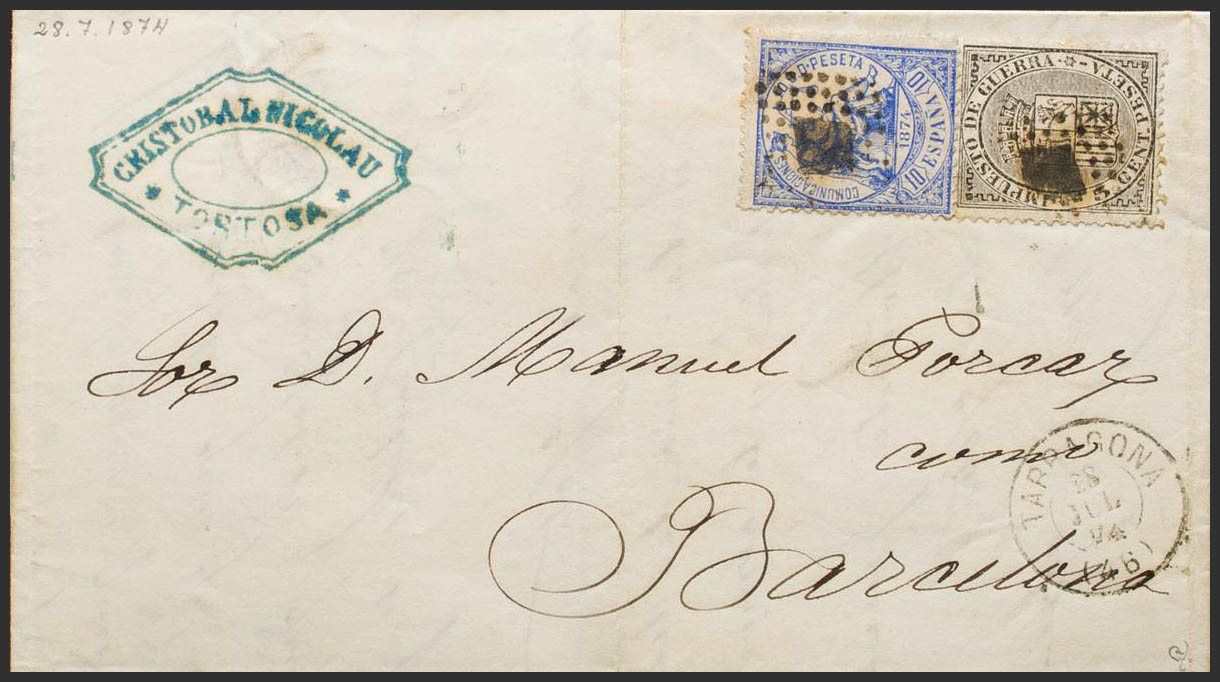 28.7.1874
CRISTOBAL NICOLAU
* TORTOSA *
COMUNICACIONES
D PESETA
10 ESPAÑA 10
1874
IMPUESTO DE GUERRA
5 CENT PESETA
Sor D. Manuel Porcar
como
Barcelona
TARRAGONA
28
JUL
74
(46)